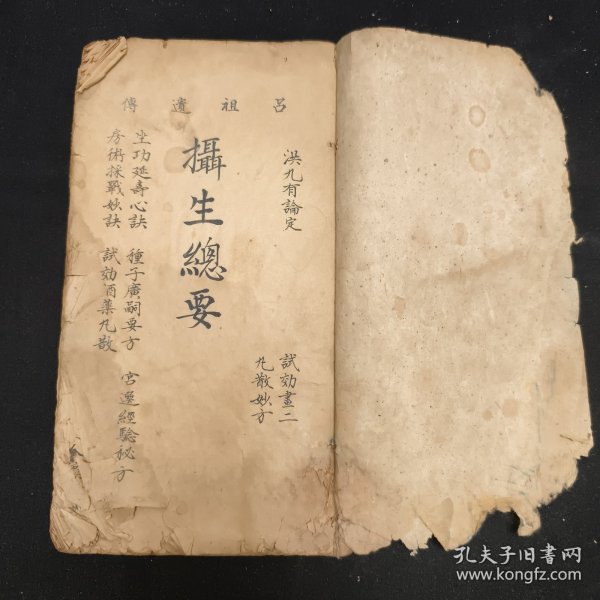 呂祖遺傳
洪九有論定
試効畫二
丸散妙方
攝生總要
坐功延壽心訣
種子廣嗣要方
宮邃經驗秘方
房術採戰妙訣
試効酒藥丸散
孔夫子旧书网
www.kongfz.com